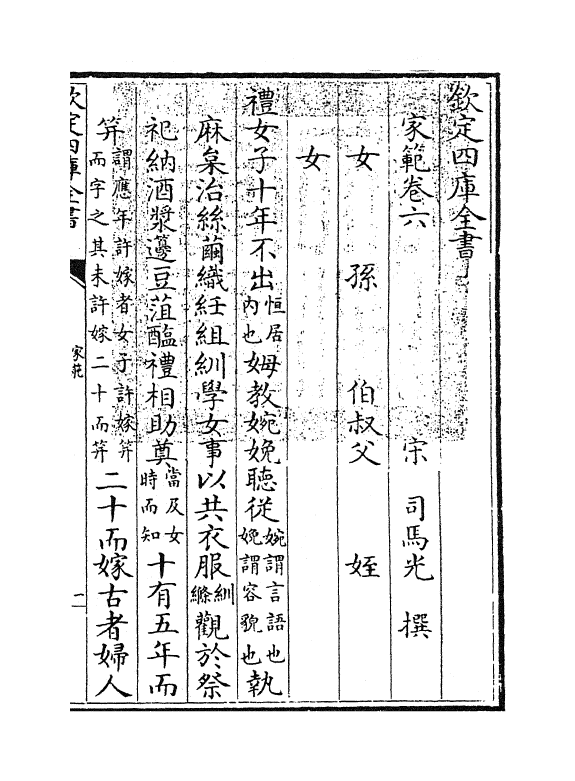 欽定四庫全書
家範卷六
宋 司馬光 撰
女 孫 伯叔父 姪
女
禮女子十年不出恒居內也姆教婉娩聽從婉謂言語也娩謂容貌也執
麻枲治絲繭織紝組紃學女事以共衣服紃絛觀於祭
祀納酒漿籩豆菹醢禮相助奠當及女時而知十有五年而
笄謂應年許嫁者女子許嫁笄而字之其未許嫁二十而笄二十而嫁古者婦人
欽定四庫全書
家範
一